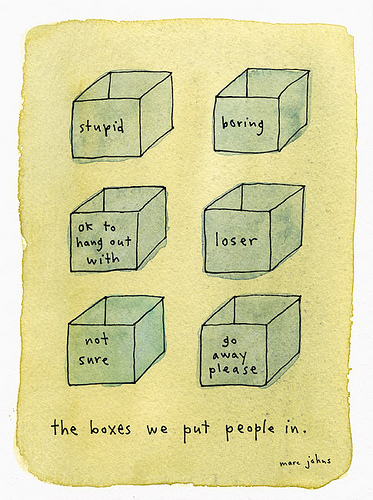 stupid
boring
ok to
hang out
with
loser
not
sure
go
away
please
the boxes we put people in.
marc johns